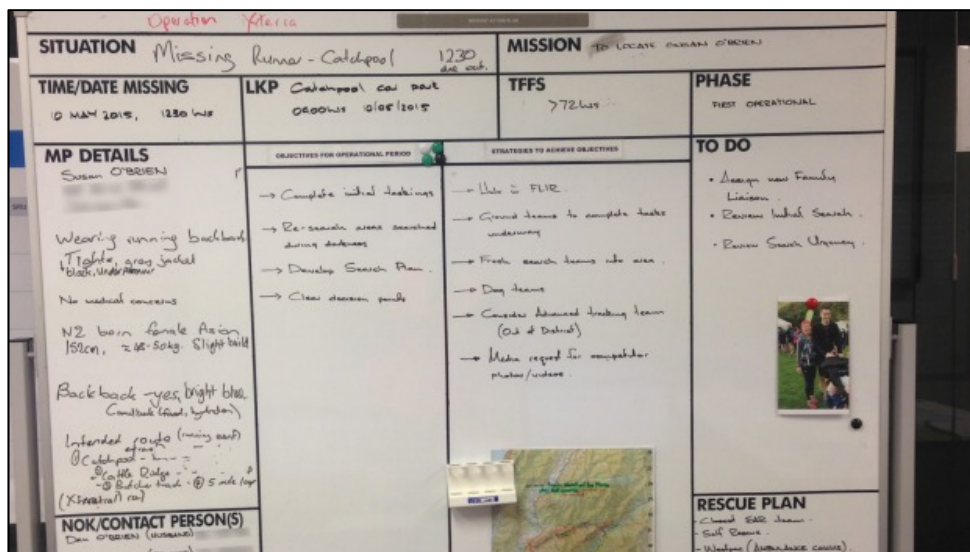 Operation Xteria
SITUATION Missing Runner - Catchpool 1230
due out.
MISSION TO LOCATE SUSAN O'BRIEN
TIME/DATE MISSING
10 MAY 2015, 1230 hrs
LKP Catchpool car park
0800hrs 10/05/2015
TFFS
>72hrs
PHASE
FIRST OPERATIONAL
MP DETAILS
Susan O'BRIEN
Wearing running backback
Tights, gray jacket
black, Under Armour
No medical concerns
NZ born female Asian
152cm, ≈ 48-50kg. Slight build
Backback - yes, bright blue
Camelbak (food, hydration)
Intended route (running event)
① Catchpool
② Cattle Ridge
③ Butcher track - @ 5 mile loop
(Xterra trail run)
NOK/CONTACT PERSON(S)
Dan O'BRIEN (HUSBAND)
OBJECTIVES FOR OPERATIONAL PERIOD
→ Complete initial taskings
→ Re-search areas searched
during darkness
→ Develop Search Plan.
→ Clear decision points
STRATEGIES TO ACHIEVE OBJECTIVES
→ Helo FLIR.
→ Ground teams to complete tasks
underway
→ Fresh search teams into area.
→ Dog teams
→ Consider Advanced tracking team
(Out of District)
→ Media request for competitor
photos/videos.
TO DO
• Assign new Family
Liaison.
• Review Initial Search.
• Review Search Urgency.
RESCUE PLAN
- Closest SAR team.
- Self Rescue.
- Westpac (AMBULANCE COMMS)